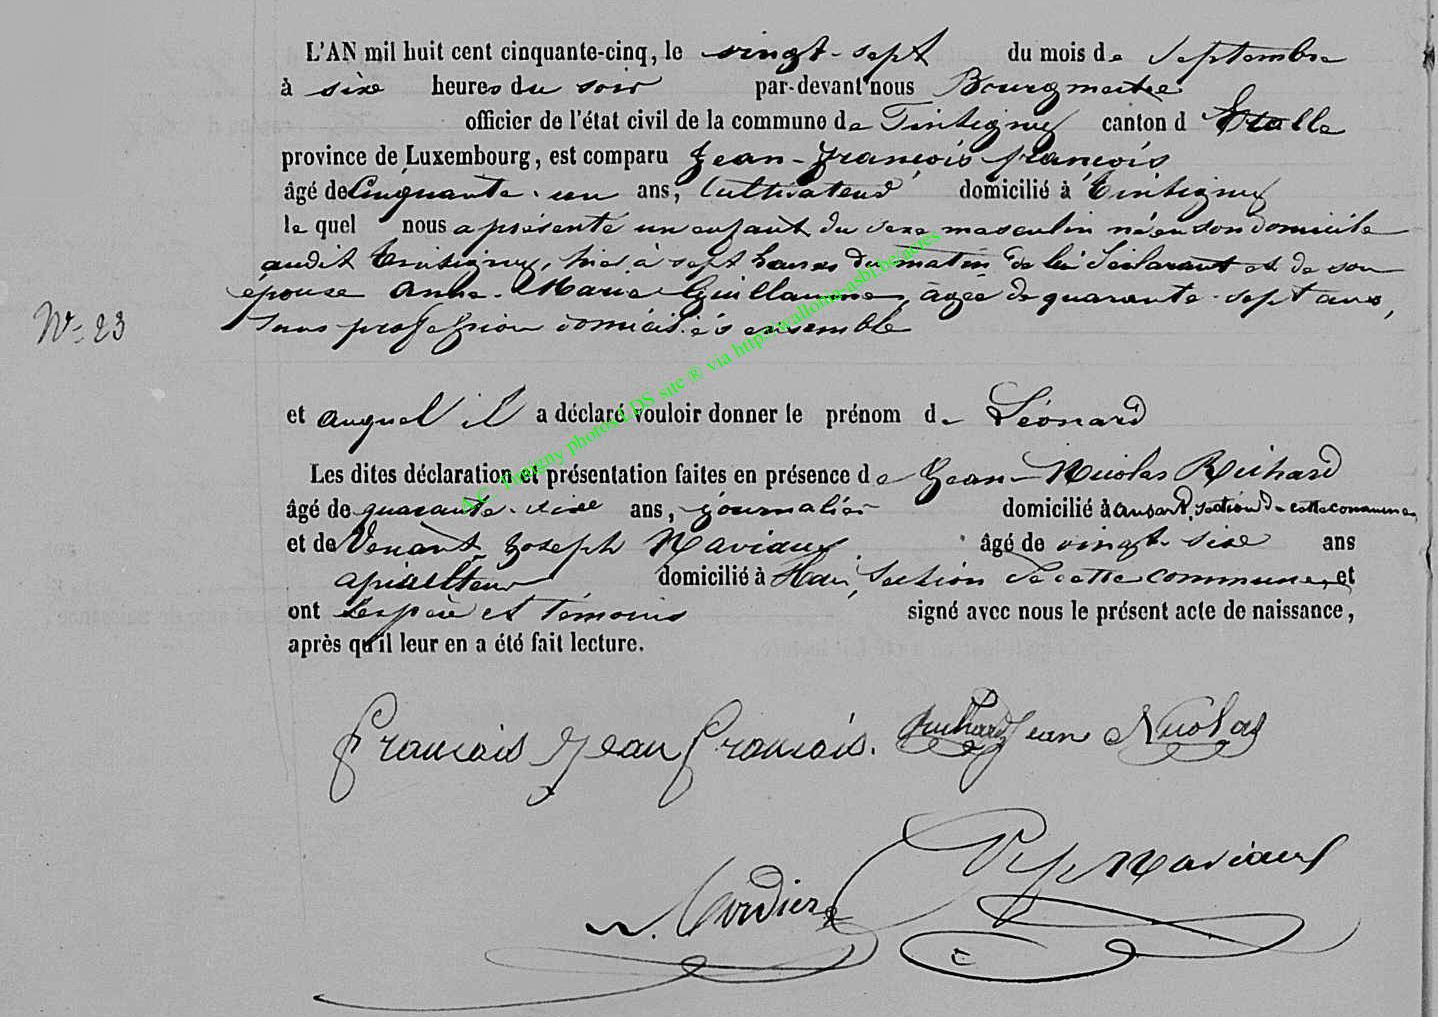 L'AN mil huit cent cinquante-cinq, le vingt-sept du mois de septembre
à sixe heures du soir par-devant nous Bourgmestre
officier de l'état civil de la commune de Tintigny canton d'Etalle
province de Luxembourg, est comparu Jean-François françois
âgé de Cinquante-un ans, Cultivateur domicilié à Tintigny
le quel nous a présenté un enfant du sexe masculin né en son domicile
audit Tintigny, hier à sept heures du matin de lui Déclarant et de son
épouse Anne-Marie Guillaume, âgée de quarante-sept ans,
sans profession domiciliés ensemble
N°. 23
et auquel il a déclaré vouloir donner le prénom de Léonard
Les dites déclaration et présentation faites en présence de Jean-Nicolas Richard
âgé de quarante-sixe ans, journalier domicilié à ansart, section de cette commune,
et de Venant Joseph Naviaux âgé de vingt-sixe ans
apiculteur domicilié à Han, Section de cette commune, et
ont les père et Témoins signé avec nous le présent acte de naissance,
après qu'il leur en a été fait lecture.
François Jean françois. Richard Jean Nicolas
V J Naviaux
A.C. Tintigny photos LDS site ® via http://wallonia-asbl.be/actes